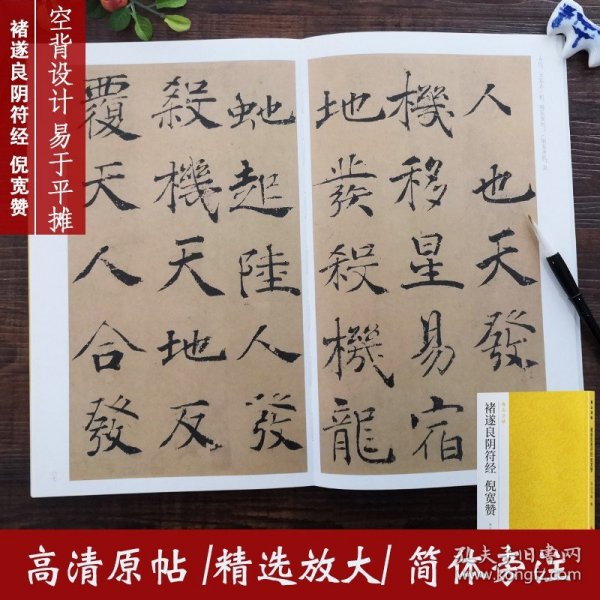 空背设计 易于平摊
褚遂良阴符经 倪宽赞
人也天發
機移星易宿
地發殺機龍
虵起陸人發
殺機天地反
覆天人合發
褚遂良阴符经 倪宽赞
高清原帖 /精选放大/ 简体旁注
孔夫子旧书网
www.kongfz.com